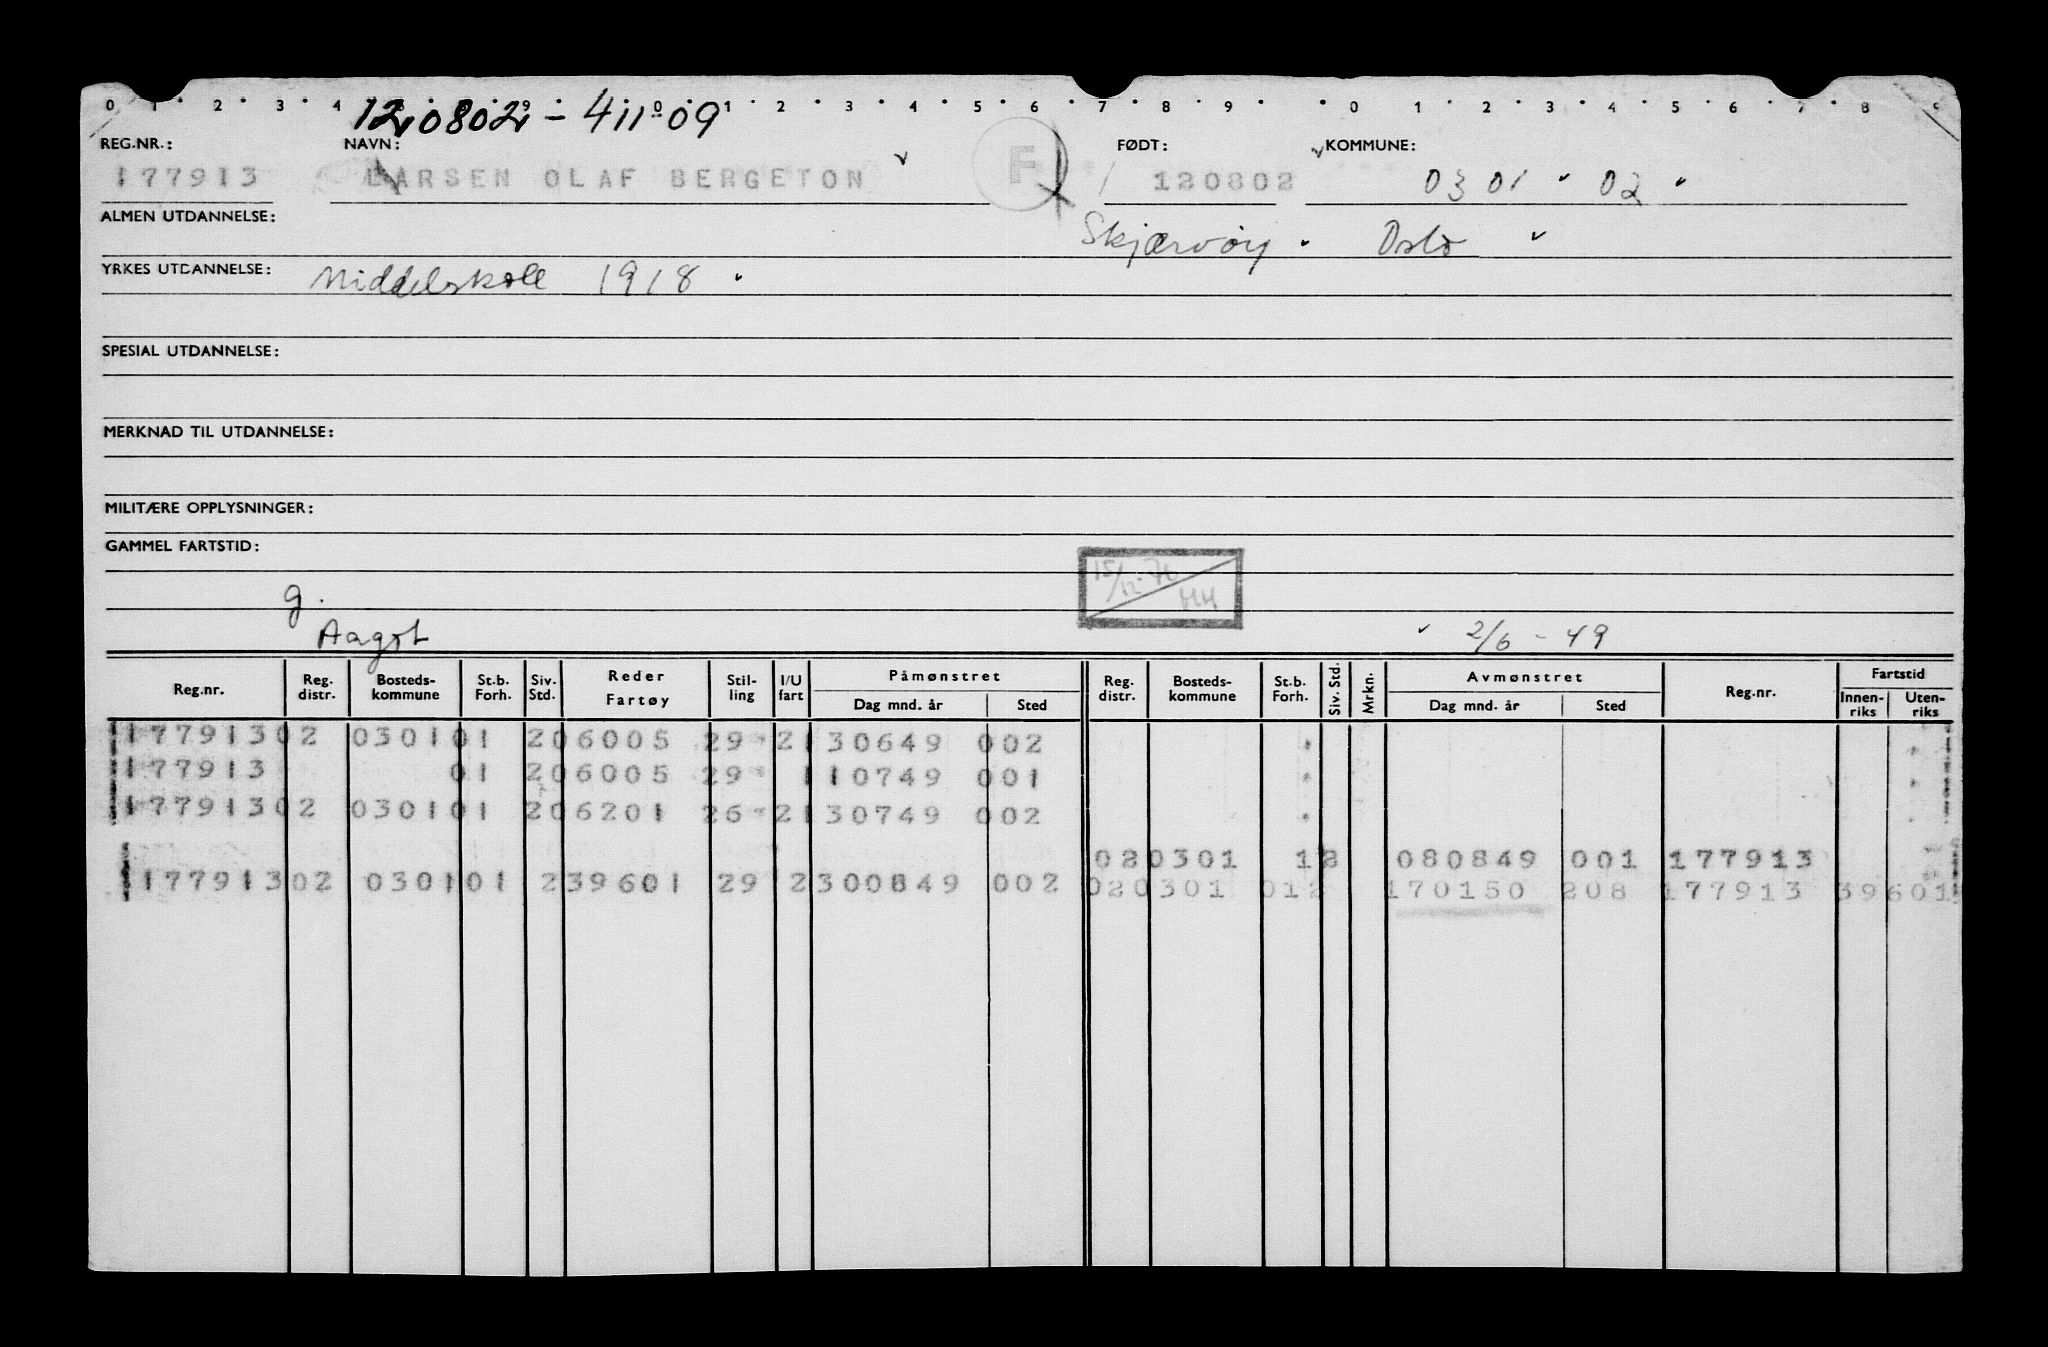 0 1 2 3 4 5 6 7 8 9 0 1 2 3 4 5 6 7 8 9 0 1 2 3 4 5 6 7 8 9
120802 - 41109
REG.NR.: NAVN: FØDT: KOMMUNE:
177913 LARSEN OLAF BERGETON F 120802 0301 02
ALMEN UTDANNELSE: Skjærvøy Oslo
YRKES UTDANNELSE: Middelskole 1918
SPESIAL UTDANNELSE:
MERKNAD TIL UTDANNELSE:
MILITÆRE OPPLYSNINGER:
GAMMEL FARTSTID:
15/12-76 HH
g.
Aagot 2/6 - 49
Reg.nr. Reg. distr. Bosteds-kommune St.b. Forh. Siv. Std. Reder Fartøy Stil-ling I/U fart Påmønstret Dag mnd. år Sted Reg. distr. Bosteds-kommune St.b. Forh. Siv. Std. Mrkn. Avmønstret Dag mnd. år Sted Reg.nr. Fartstid Innen-riks Uten-riks
17791302 030101 206005 29 2130649 002
177913 01 206005 29 110749 001
17791302 030101 206201 26 2130749 002
020301 12 080849 001 177913
17791302 030101 239601 29 2300849 002 020301 012 170150 208 177913 39601